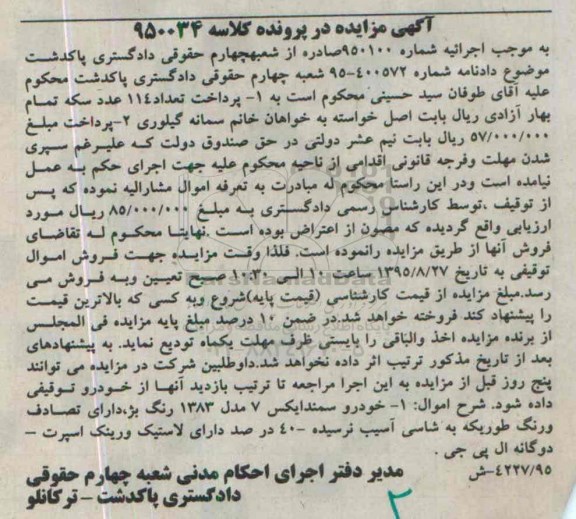 آگهی مزایده در پرونده کلاسه ۹۵۰۰۳۴
به موجب اجرائیه شماره ۹۵۰۱۰۰صادره از شعبهچهارم حقوقی دادگستری پاکدشت
موضوع دادنامه شماره ۴۰۰۵۷۲-۹۵ شعبه چهارم حقوقی دادگستری پاکدشت محکوم
علیه آقای طوفان سید حسینی محکوم است به ۱- پرداخت تعداد۱۱۴ عدد سکه تمام
بهار آزادی ریال بابت اصل خواسته به خواهان خانم سمانه گیلوری ۲-پرداخت مبلغ
۵۷/۰۰۰/۰۰۰ ریال بابت نیم عشر دولتی در حق صندوق دولت که علیرغم سپری
شدن مهلت وفرجه قانونی اقدامی از ناحیه محکوم علیه جهت اجرای حکم به عمل
نیامده است ودر این راستا محکوم له مبادرت به تعرفه اموال مشارالیه نموده که پس
از توقیف ،توسط کارشناس رسمی دادگستری به مبلغ ۸۵/۰۰۰/۰۰۰ ریال مورد
ارزیابی واقع گردیده که مصون از اعتراض بوده است .نهایتا محکوم له تقاضای
فروش آنها از طریق مزایده رانموده است. فلذا وقت مزایده جهت فروش اموال
توقیفی به تاریخ ۱۳۹۵/۸/۲۷ ساعت ۱۰ الی ۱۰:۳۰ صبح تعیین وبه فروش می
رسد.مبلغ مزایده از قیمت کارشناسی (قیمت پایه)شروع وبه کسی که بالاترین قیمت
را پیشنهاد کند فروخته خواهد شد.در ضمن ۱۰ درصد مبلغ پایه مزایده فی المجلس
از برنده مزایده اخذ والباقی را بایستی ظرف مهلت یکماه تودیع نماید. به پیشنهادهای
بعد از تاریخ مذکور ترتیب اثر داده نخواهد شد.داوطلبین شرکت در مزایده می توانند
پنج روز قبل از مزایده به این اجرا مراجعه تا ترتیب بازدید آنها از خودرو توقیفی
داده شود. شرح اموال: ۱- خودرو سمندایکس ۷ مدل ۱۳۸۳ رنگ بژ،دارای تصادف
ورنگ طوریکه به شاسی آسیب نرسیده -۴۰ در صد دارای لاستیک ورینگ اسپرت –
دوگانه ال پی جی .
۴۲۲۷/۹۵-ش
مدیر دفتر اجرای احکام مدنی شعبه چهارم حقوقی
دادگستری پاکدشت – ترکانلو
۲